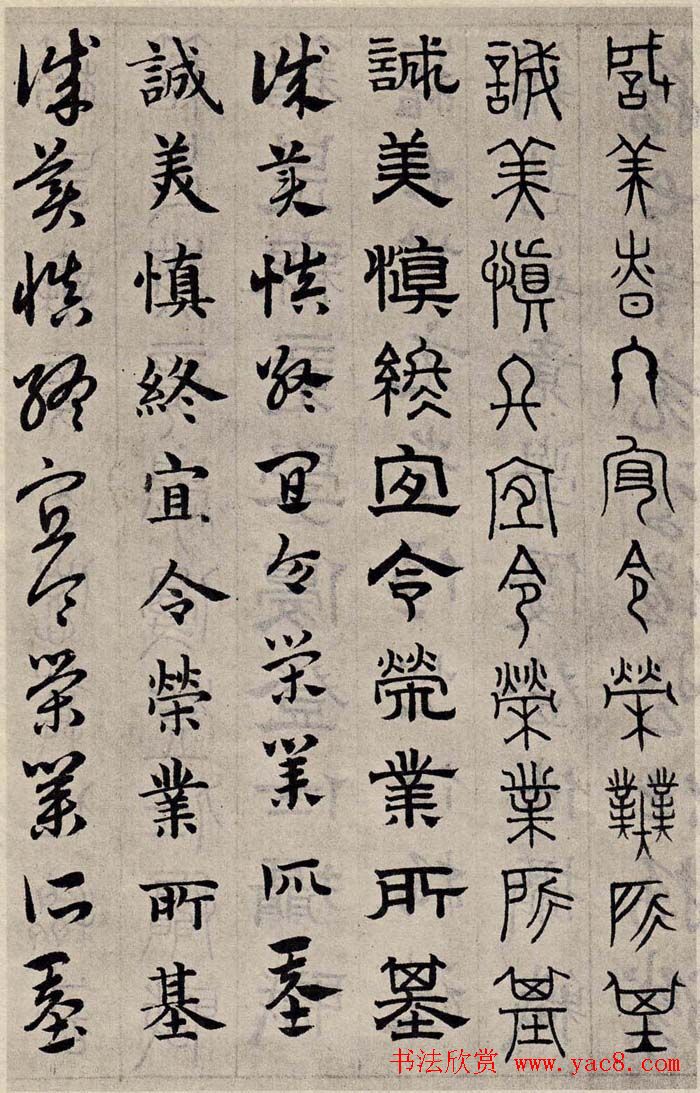 誠美慎終宜令榮業所基
誠美慎終宜令榮業所基
誠美慎終宜令榮業所基
誠美慎終宜令榮業所基
誠美慎終宜令榮業所基
誠美慎終宜令榮業所基
书法欣赏 www.yac8.com